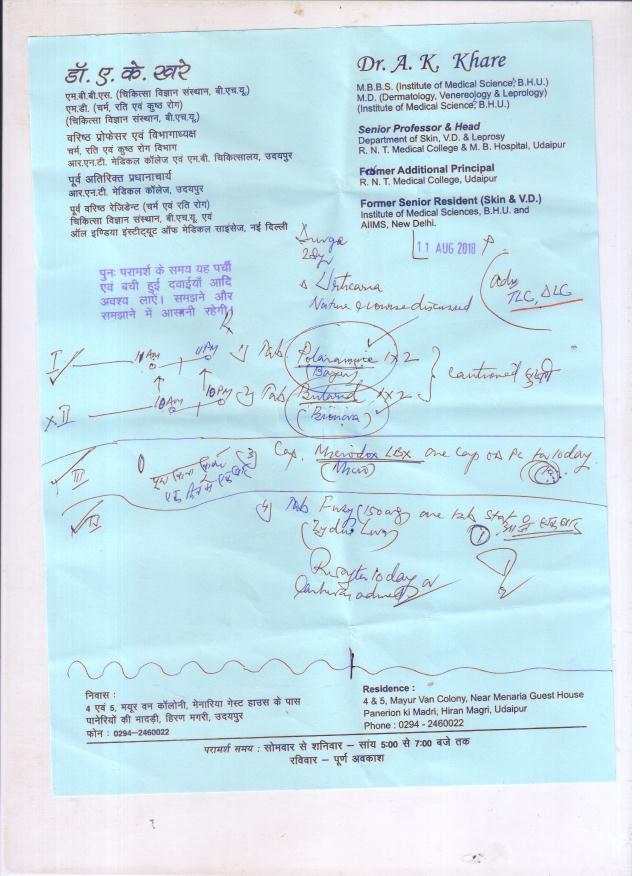 डॉ. ए. के. खरे
एम.बी.बी.एस. (चिकित्सा विज्ञान संस्थान, बी.एच.यू.)
एम.डी. (चर्म, रति एवं कुष्ठ रोग)
(चिकित्सा विज्ञान संस्थान, बी.एच.यू.)
वरिष्ठ प्रोफेसर एवं विभागाध्यक्ष
चर्म, रति एवं कुष्ठ रोग विभाग
आर.एन.टी. मेडिकल कॉलेज एवं एम.बी. चिकित्सालय, उदयपुर
पूर्व अतिरिक्त प्रधानाचार्य
आर.एन.टी. मेडिकल कॉलेज, उदयपुर
पूर्व वरिष्ठ रेजिडेन्ट (चर्म एवं रति रोग)
चिकित्सा विज्ञान संस्थान, बी.एच.यू. एवं
ऑल इण्डिया इंस्टीट्यूट ऑफ मेडिकल साइंसेज, नई दिल्ली
Dr. A. K. Khare
M.B.B.S. (Institute of Medical Science, B.H.U.)
M.D. (Dermatology, Venereology & Leprology)
(Institute of Medical Science, B.H.U.)
Senior Professor & Head
Department of Skin, V.D. & Leprosy
R. N. T. Medical College & M. B. Hospital, Udaipur
Former Additional Principal
R. N. T. Medical College, Udaipur
Former Senior Resident (Skin & V.D.)
Institute of Medical Sciences, B.H.U. and
AIIMS, New Delhi.
11 AUG 2018
पुनः परामर्श के समय यह पर्ची
एवं बची हुई दवाईयाँ आदि
अवश्य लाएं। समझने और
समझाने में आसानी रहेगी।
Urticaria
Nature & course discussed
adv
TLC, DLC
I 11 AM 11 PM 1) Tab. Polaramine 1 x 2
(Bayer)
Cautioned
x II 10 AM 10 PM Tab 1 x 2
III 3) Cap. Microdox LBX one cap OD PC for 10 day
(Micro)
IV 4) Tab (150 mg) one tab stat
निवास :
4 एवं 5, मयूर वन कॉलोनी, मेनारिया गेस्ट हाउस के पास
पानेरियों की मादड़ी, हिरण मगरी, उदयपुर
फोन : 0294–2460022
Residence :
4 & 5, Mayur Van Colony, Near Menaria Guest House
Panerion ki Madri, Hiran Magri, Udaipur
Phone : 0294 - 2460022
परामर्श समय : सोमवार से शनिवार – सांय 5:00 से 7:00 बजे तक
रविवार – पूर्ण अवकाश